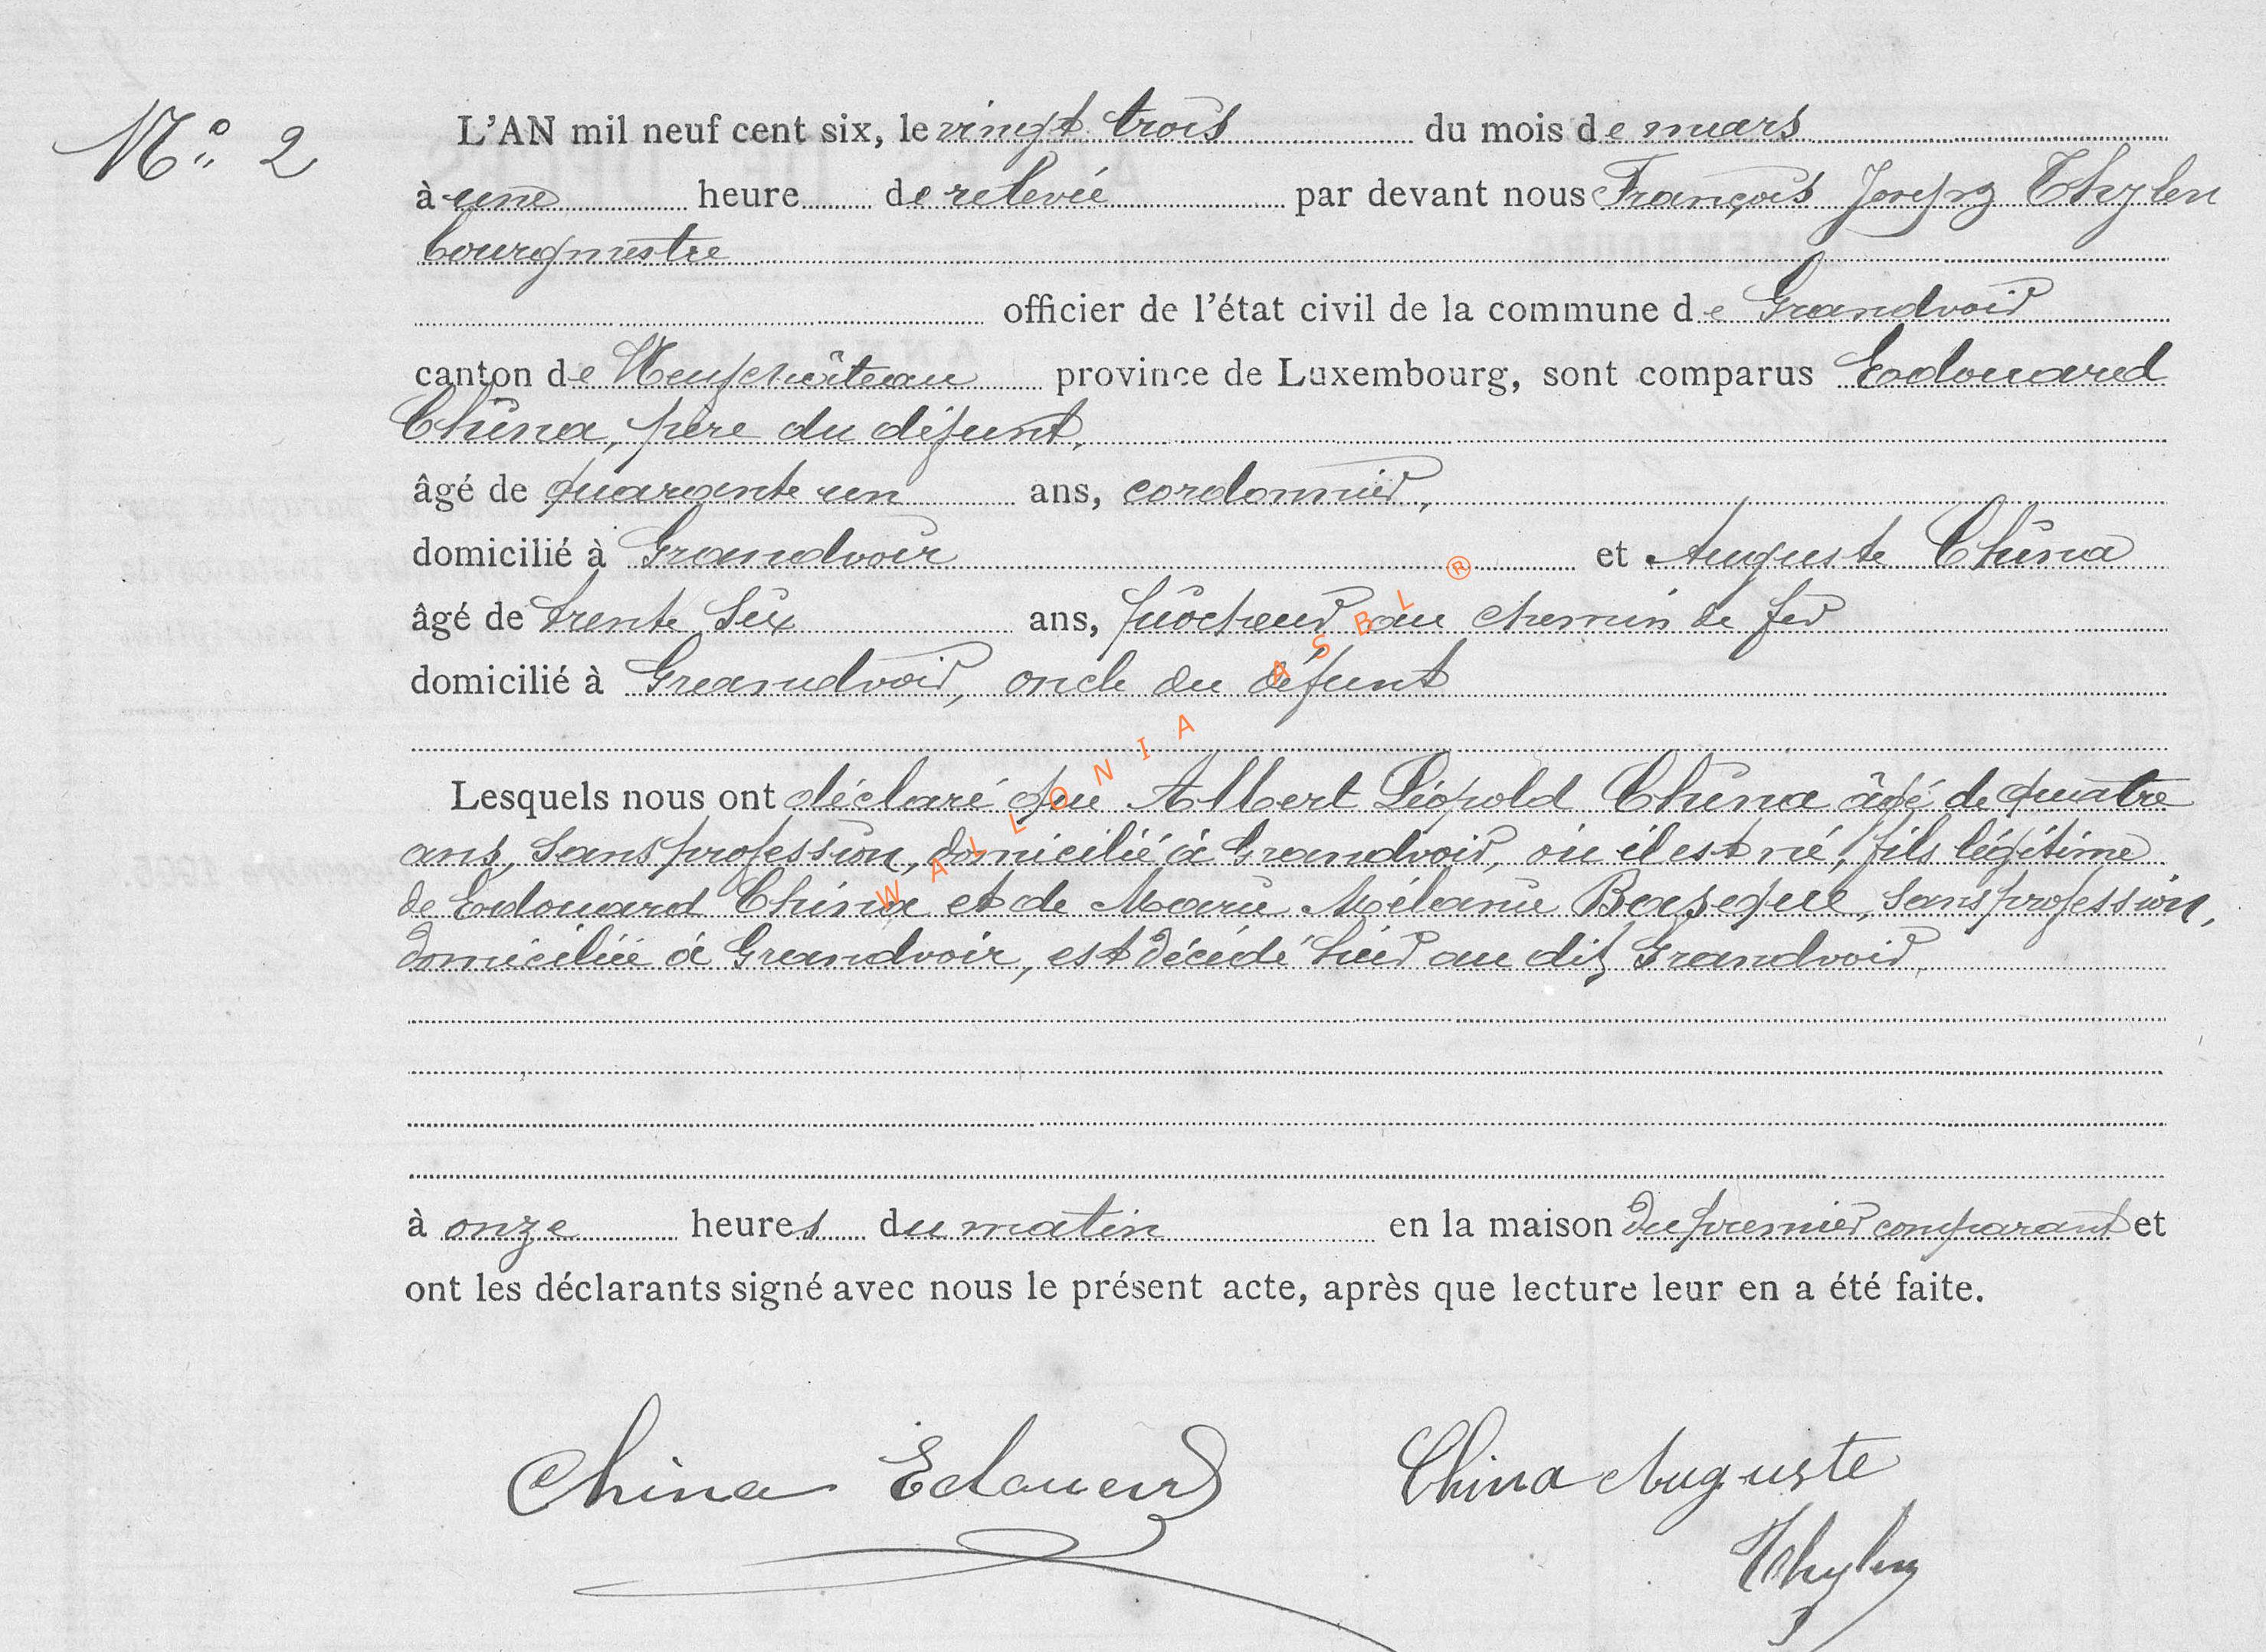 N° 2
L'AN mil neuf cent six, le vingt trois du mois de mars
à une heure de relevée par devant nous François Joseph Thylen
bourgmestre
officier de l'état civil de la commune de Grandvoir
canton de Neufchâteau province de Luxembourg, sont comparus Edouard
China, père du défunt,
âgé de quarante un ans, cordonnier,
domicilié à Grandvoir et Auguste China
âgé de trente six ans, piocheur au chemin de fer
domicilié à Grandvoir, oncle du défunt
Lesquels nous ont déclaré que Albert Léopold China âgé de quatre
ans, sans profession, domicilié à Grandvoir, où il est né, fils légitime
de Edouard China et de Marie Mélanie Baseque, sans profession,
domiciliée à Grandvoir, est décédé hier au dit Grandvoir
à onze heures du matin en la maison du premier comparant et
ont les déclarants signé avec nous le présent acte, après que lecture leur en a été faite.
China Edouard China Auguste
Thylen
WALLONIA ASBL ®